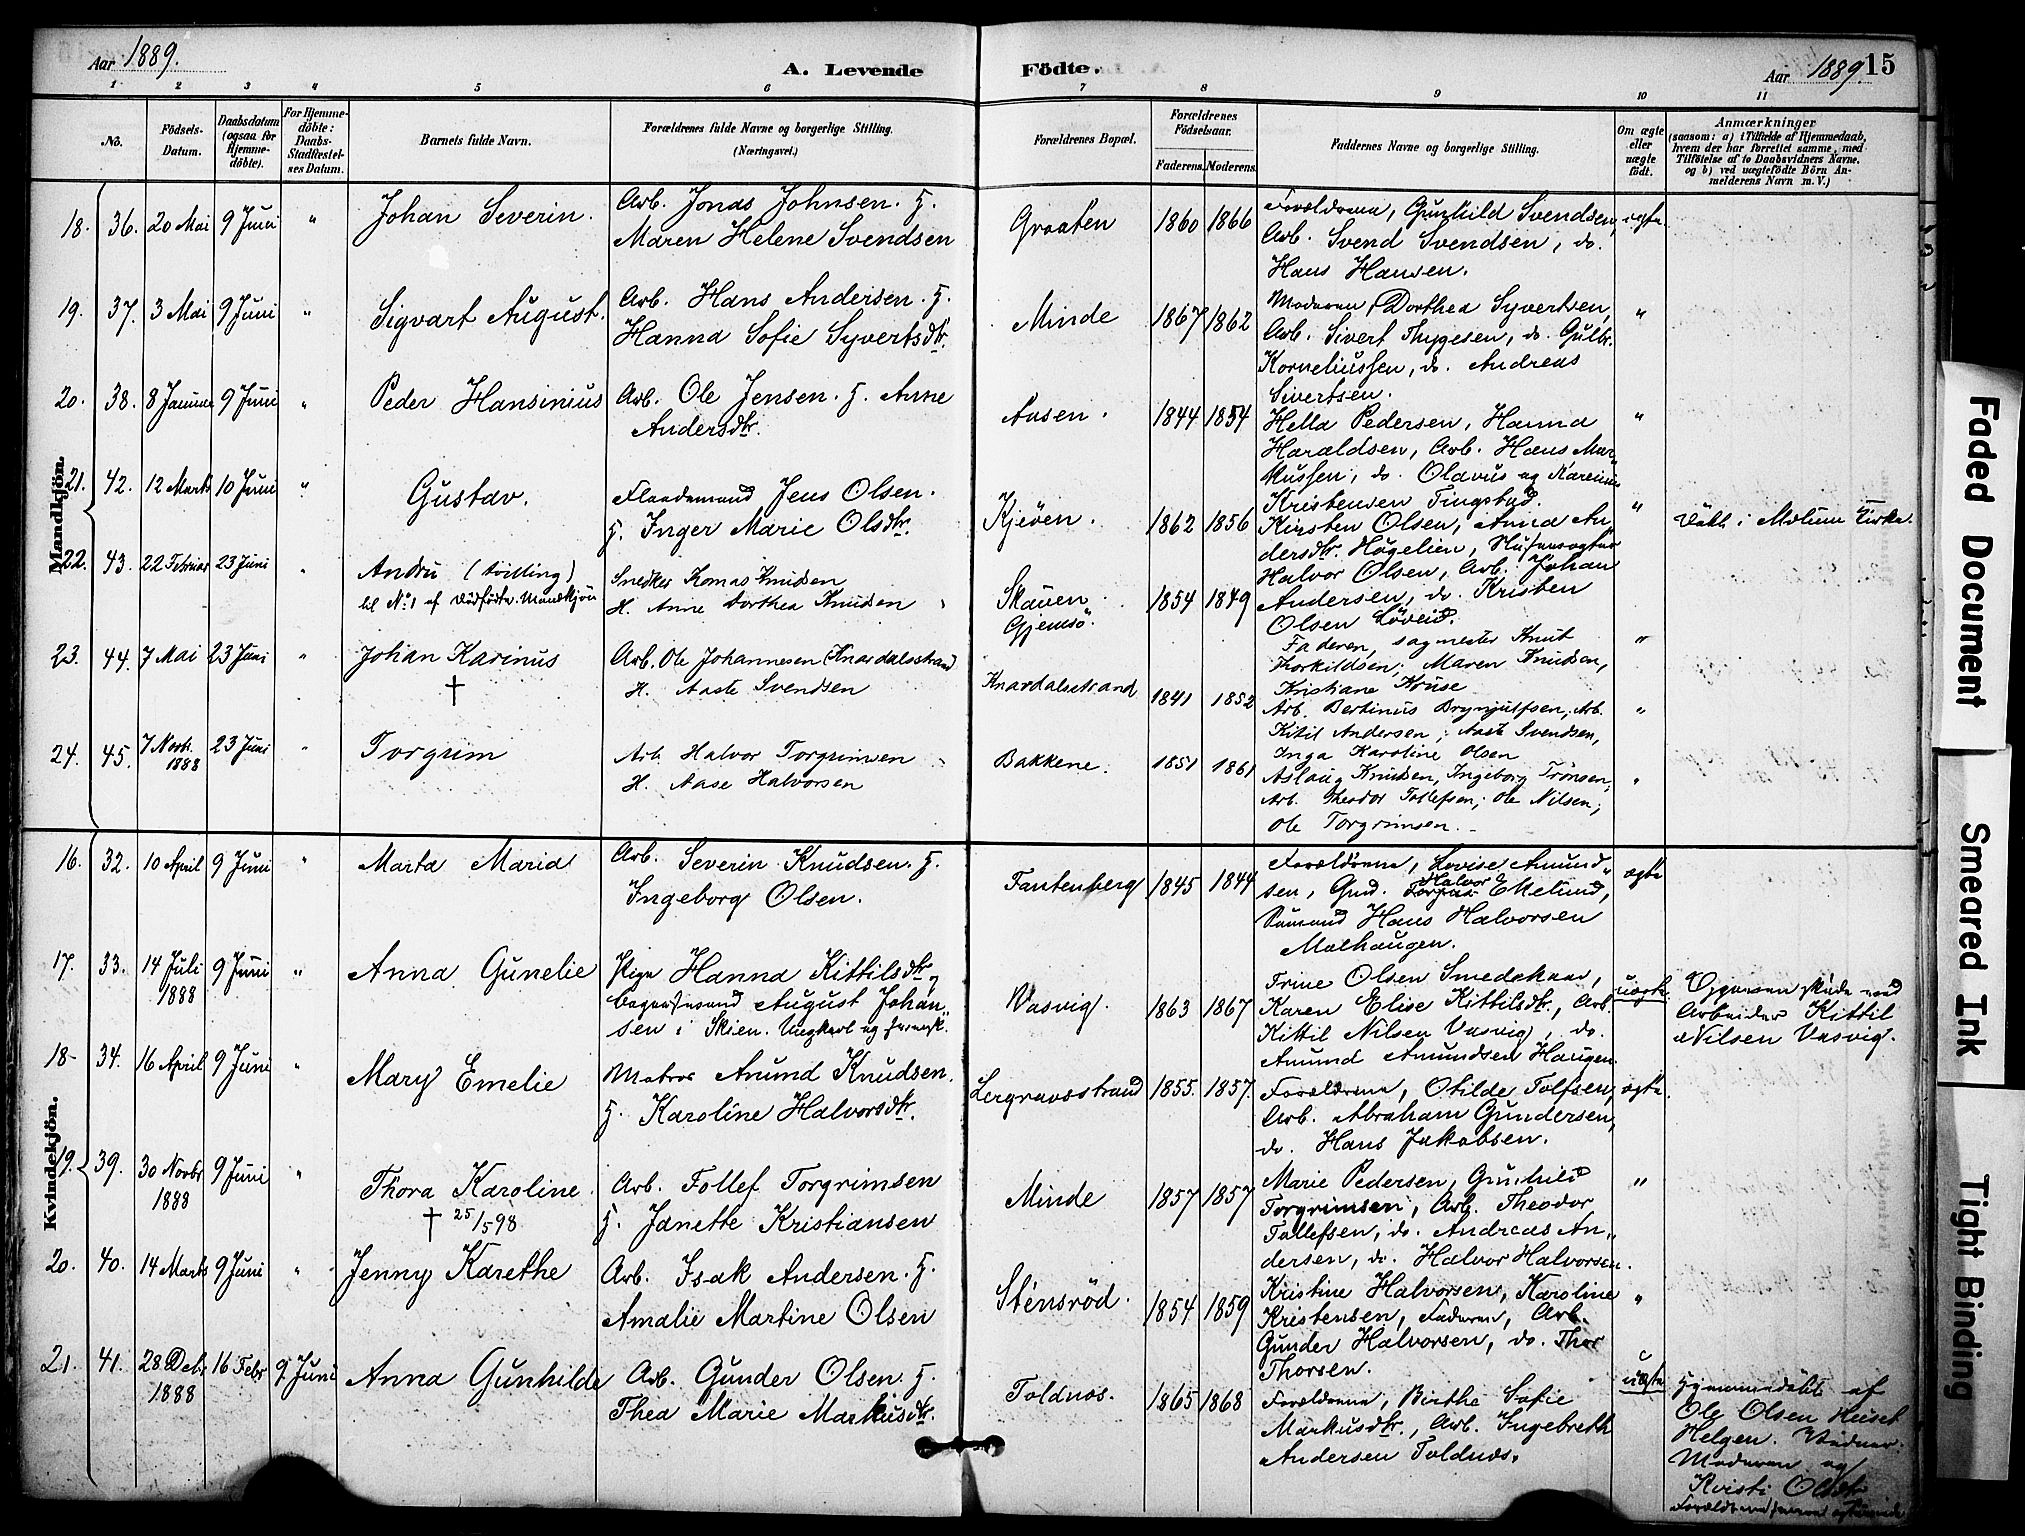 Aar 1889.
A. Levende Födte.
Aar 1889. 15
1 2 3 4 5 6 7 8 9 10 11
No.
Födsels-Datum.
Daabsdatum (ogsaa for Hjemmedöbte).
For Hjemmedöbte: Daabs-Stadfæstelses Datum.
Barnets fulde Navn.
Forældrenes fulde Navne og borgerlige Stilling.
(Næringsvei.)
Forældrenes Bopæl.
Forældrenes Födselsaar.
Faderens. Moderens.
Faddernes Navne og borgerlige Stilling.
Om ægte eller uægte födt.
Anmærkninger
(saasom: a) i Tilfælde af Hjemmedaab, hvem der har forrettet samme, med Tilföielse af to Daabsvidners Navne, og b) ved uægtefödte Börn Anmelderens Navn m. V.)
Mandkjön.
18. 36. 20 Mai 9 Juni " Johan Severin.
Arb. Jonas Johnsen. H.
Maren Helene Svendsen
Graaten 1860 1866
Forældrene, Gunhild Svendsen,
Arb. Svend Svendsen, do.
Hans Hansen.
ægte
19. 37. 3 Mai 9 Juni " Sigvart August.
Arb. Hans Andersen. H.
Hanna Sofie Syvertsdtr.
Minde 1867 1862
Moderen, Dorthea Syvertsen,
Arb. Sivert Thygesen, do. Gulbr.
Korneliussen, do. Andreas
Sivertsen.
"
20. 38. 8 Januar 9 Juni " Peder Hansinius
Arb. Ole Jensen. H. Anne
Andersdtr.
Aasen. 1844 1854
Hella Pedersen, Hanna
Haraldsen, Arb. Hans Mar-
kussen, do. Olavus og Karinius
Kristensen Tingstad.
"
21. 42. 12 Marts 10 Juni " Gustav.
Flaademand Jens Olsen.
H. Inger Marie Olsdtr.
Kjeöen. 1862 1856
Kirsten Olsen, Anna An-
dersdtr. Høgelien,
Halvor Olsen, Arb. Johan
Andersen, do. Kristen
Olsen Löveid.
"
Döbt i Mælum Kirke.
22. 43. 22 Februar 23 Juni " Andru (tvilling)
til No 1 af Dödfødte. Mandkjön
Snedker Tomas Knudsen
H. Anne Dorthea Knudsen
Skauen Gjemsö. 1854 1849
Faderen, sagmester Knut
Torkildsen; Maren Knudsen,
Kristiane Kruse
"
23. 44. 7 Mai 23 Juni " Johan Karinus
†
Arb. Ole Johannesen Knardalsstrand
H. Aaste Svendsen
Knardalsstrand 1841 1852
Arb. Bertinus Brynjulfsen, Arb.
Kitil Andersen; Aaste Svendsen,
Inga Karoline Olsen
"
24. 45. 7 Novb. 1888 23 Juni " Torgrim
Arb. Halvor Torgrimsen
H. Aase Halvorsen
Bakkene. 1851 1861
Aslaug Knudsen, Ingeborg Trönsen;
Arb. Theodor Tollefsen; Ole Nilsen;
Ole Torgrimsen.
"
Kvindekjön.
16. 32. 10 April 9 Juni " Marta Maria
Arb. Severin Knudsen. H.
Ingeborg Olsen.
Fantenberg 1845 1844
Forældrene, Lovise Amund-
sen, Gmd. Halvor Ekelund,
Hans Halvorsen
Mælhaugen.
ægte
17. 33. 14 Juli 1888 9 Juni " Anna Gunelie
Pige Hanna Kittilsdtr,
August Johan-
sen i Skien. Ungkarl og
Vasvig. 1863 1867
Trine Olsen Smedskaas,
Karen Elise Kittilsdtr., Arb.
Kittil Nilsen Vasvig, do.
Amund Amundsen Haugen.
uægte
Opgaven skede ved
Arbeider Kittil
Nilsen Vasvig.
18. 34. 16 April 9 Juni " Mary Emelie
Matros Anund Knudsen.
H. Karoline Halvorsdtr.
Lergravsstrand 1855. 1857.
Forældrene, Otilde Tolfsen,
Arb. Abraham Gundersen,
do. Hans Jakobsen.
ægte
19. 39. 30 Novbr 1888 9 Juni " Thora Karoline.
† 25/5 98
Arb. Tollef Torgrimsen
H. Janette Kristiansen
Minde 1857 1857
Marie Pedersen, Gunhild
Torgrimsen, Arb. Theodor
Tollefsen, do. Andreas An-
dersen, do. Halvor Halvorsen.
"
20. 40. 14 Marts 9 Juni " Jenny Karethe
Arb. Isak Andersen. H.
Amalie Martine Olsen
Stensröd. 1854 1859
Kristine Halvorsen, Karoline
Kristensen, Faderen, Arb.
Gunder Halvorsen, do. Thor
Thorsen.
"
21. 41. 28 Debr 1888 16 Febr 9 Juni Anna Gunhilde
Arb. Gunder Olsen. H.
Thea Marie Markusdtr.
Toldnæs. 1865 1868
Forældrene, Birthe Sofie
Markusdtr., Arb. Ingebreth
Andersen Toldnæs.
uægte
Hjemmedöbt af
Ole Olsen Huset
Helgen. Vidner
Moderen og
Kristi Olsdtr
Faded Document
Smeared Ink
Tight Binding